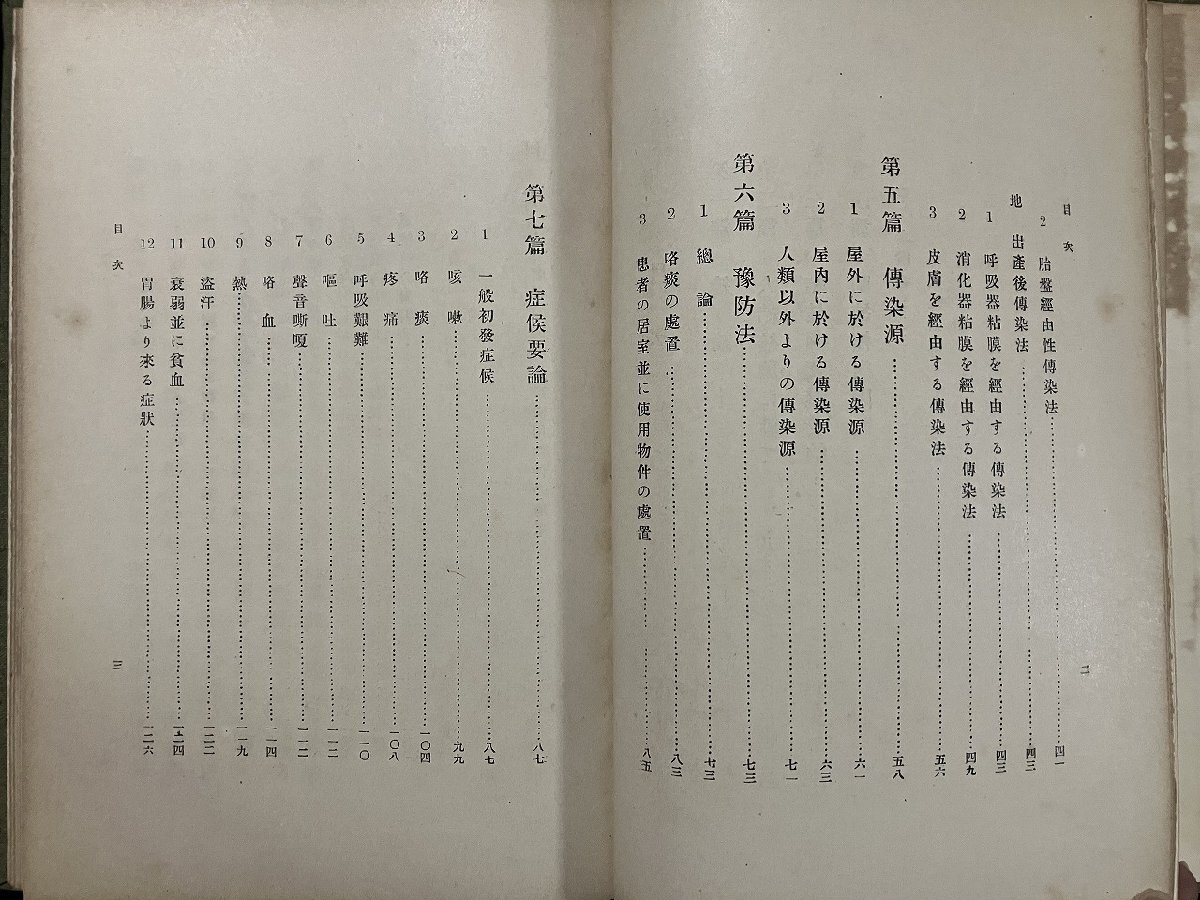 目次
2 胎盤經由性傳染法……四一
地 出產後傳染法……四三
1 呼吸器粘膜を經由する傳染法……四三
2 消化器粘膜を經由する傳染法……四九
3 皮膚を經由する傳染法……五六
第五篇 傳染源……五八
1 屋外に於ける傳染源……六一
2 屋內に於ける傳染源……六三
3 人類以外よりの傳染源……七一
第六篇 豫防法……七三
1 總論……七三
2 咯痰の處置……八三
3 患者の居室並に使用物件の處置……八五
二
第七篇 症侯要論……八七
1 一般初發症候……八七
2 咳嗽……九九
3 咯痰……一〇四
4 疼痛……一〇八
5 呼吸艱難……一一〇
6 嘔吐……一一二
7 聲音嘶嗄……一一二
8 咯血……一一四
9 熱……一一九
10 盜汗……一二二
11 衰弱並に貧血……一二四
12 胃腸より來る症狀……一二六
目次
三